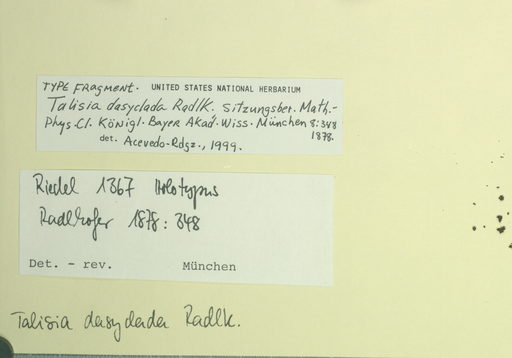 TYPE FRAGMENT. UNITED STATES NATIONAL HERBARIUM
Talisia dasyclada Radlk. Sitzungsber. Math.-
Phys. Cl. Königl. Bayer Akad. Wiss. München 8:348
1878.
det. Acevedo-Rdgz., 1999.
Riedel 1367 Holotypus
Radlkofer 1878: 348
Det. - rev. München
Talisia dasyclada Radlk.